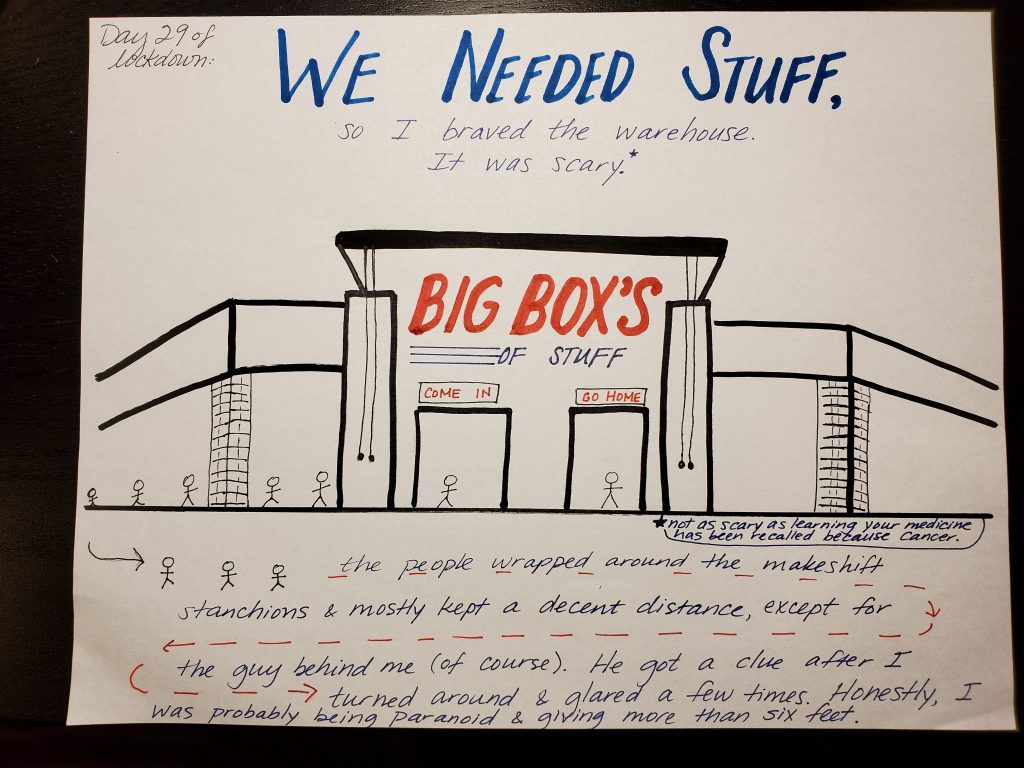 Day 29 of
lockdown:
WE NEEDED STUFF,
so I braved the warehouse.
It was scary.*
BIG BOX'S
OF STUFF
COME IN
GO HOME
*not as scary as learning your medicine
has been recalled because cancer.
the people wrapped around the makeshift
stanchions & mostly kept a decent distance, except for
the guy behind me (of course). He got a clue after I
turned around & glared a few times. Honestly, I
was probably being paranoid & giving more than six feet.